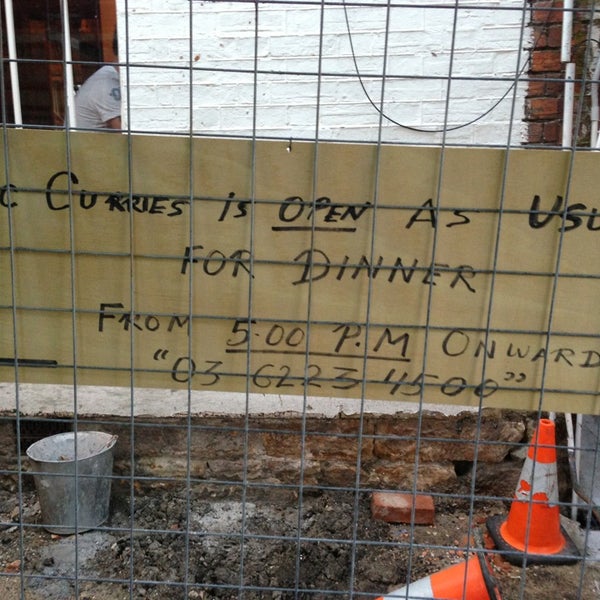 Curries is OPEN As
FOR DINNER
FROM 5.00 P.M ONWARD
"03 6223 4500"